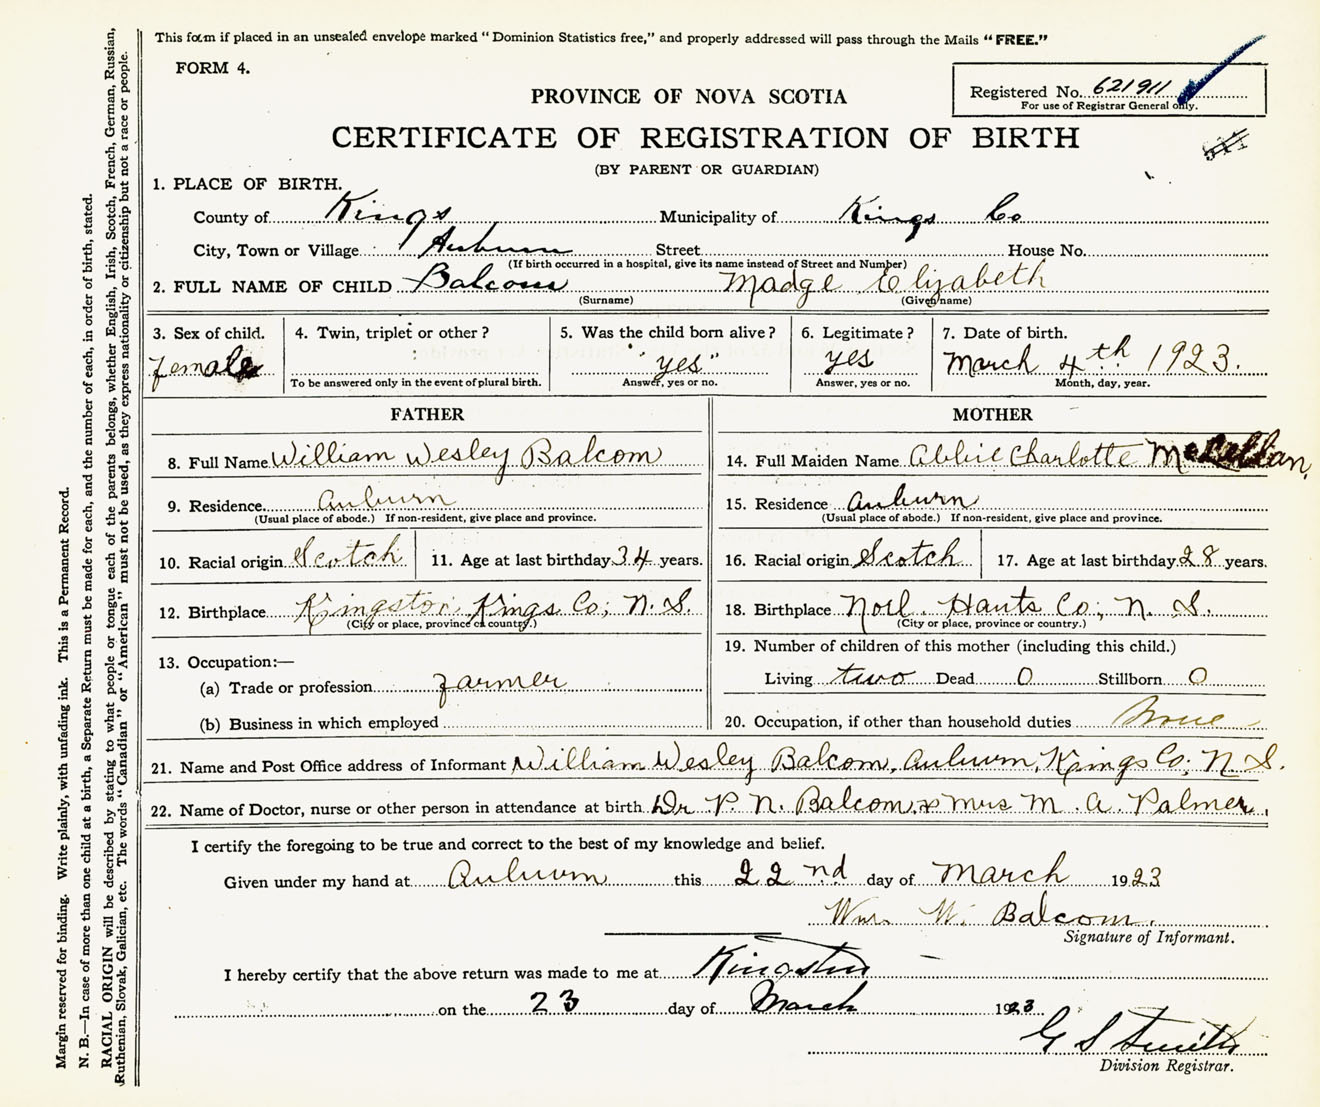 This form if placed in an unsealed envelope marked "Dominion Statistics free," and properly addressed will pass through the Mails "FREE."
FORM 4.
Registered No. 621911
For use of Registrar General only.
PROVINCE OF NOVA SCOTIA
CERTIFICATE OF REGISTRATION OF BIRTH
(BY PARENT OR GUARDIAN)
1. PLACE OF BIRTH.
County of Kings Municipality of Kings Co
City, Town or Village Auburn Street House No.
(If birth occurred in a hospital, give its name instead of Street and Number)
2. FULL NAME OF CHILD Balcom Madge Elizabeth
(Surname) (Given name)
3. Sex of child. 4. Twin, triplet or other? 5. Was the child born alive? 6. Legitimate? 7. Date of birth.
female "yes" yes March 4th 1923.
To be answered only in the event of plural birth. Answer, yes or no. Answer, yes or no. Month, day, year.
FATHER MOTHER
8. Full Name William Wesley Balcom 14. Full Maiden Name Abbie Charlotte McLellan,
9. Residence Auburn 15. Residence Auburn
(Usual place of abode.) If non-resident, give place and province. (Usual place of abode.) If non-resident, give place and province.
10. Racial origin Scotch 11. Age at last birthday 34 years. 16. Racial origin Scotch 17. Age at last birthday 28 years.
12. Birthplace Kingston, Kings Co, N. S. 18. Birthplace Noel Hants Co, N. S.
(City or place, province or country.) (City or place, province or country.)
13. Occupation:— 19. Number of children of this mother (including this child.)
(a) Trade or profession farmer Living two Dead 0 Stillborn 0
(b) Business in which employed 20. Occupation, if other than household duties None
21. Name and Post Office address of Informant William Wesley Balcom, Auburn, Kings Co, N. S.
22. Name of Doctor, nurse or other person in attendance at birth Dr P. N. Balcom & Mrs M. A. Palmer.
I certify the foregoing to be true and correct to the best of my knowledge and belief.
Given under my hand at Auburn this 22nd day of March 1923
Wm. W. Balcom.
Signature of Informant.
I hereby certify that the above return was made to me at Kingston
on the 23 day of March 1923
G S Smith
Division Registrar.
Margin reserved for binding. Write plainly, with unfading ink. This is a Permanent Record.
N. B.—In case of more than one child at a birth, a Separate Return must be made for each, and the number of each, in order of birth, stated.
RACIAL ORIGIN will be described by stating to what people or tongue each of the parents belongs, whether English, Irish, Scotch, French, German, Russian,
Ruthenian, Slovak, Galician, etc. The words "Canadian" or "American" must not be used, as they express nationality or citizenship but not a race or people.